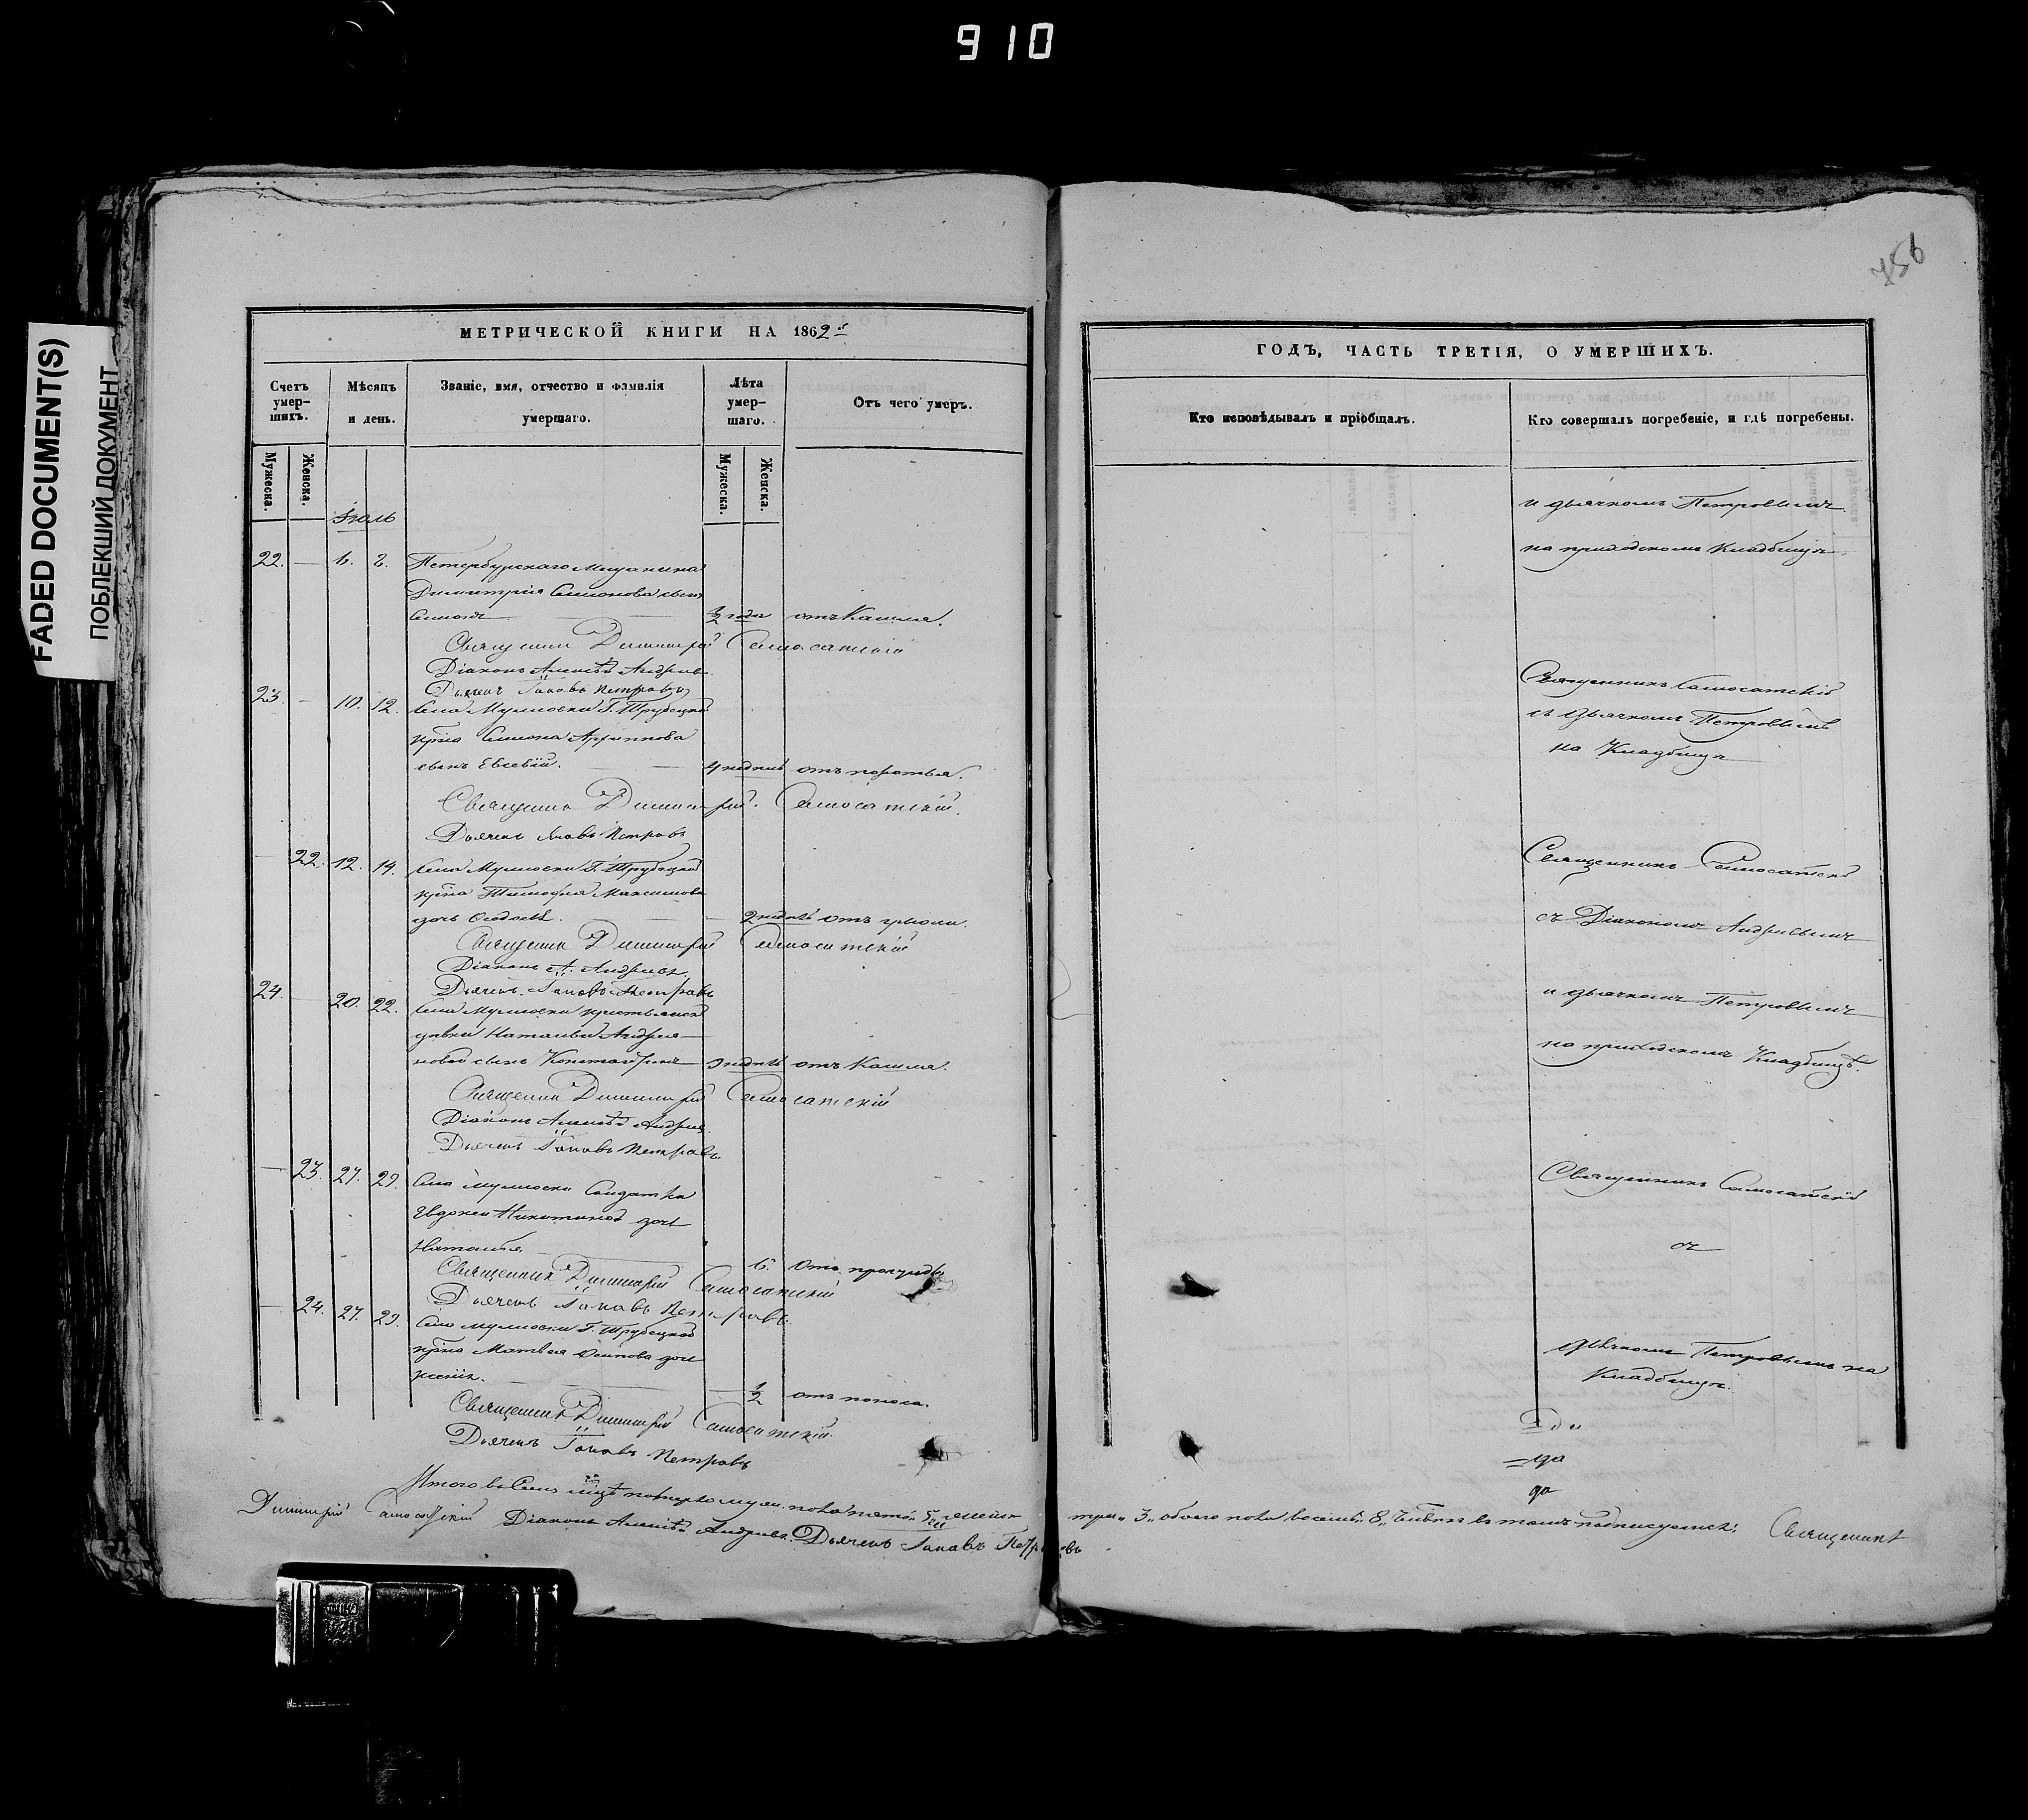 910
FADED DOCUMENT(S)
ПОБЛЕКШИЙ ДОКУМЕНТ
756
МЕТРИЧЕСКОЙ КНИГИ НА 1862й
Счетъ умер-
шихъ.
Мѣсяцъ
и день.
Званіе, имя, отчество и фамилія
умершаго.
Лѣта
умер-
шаго.
Отъ чего умеръ.
Мужеска.
Женска.
Мужеска.
Женска.
Іюль
22. — 6. 8. Петербургскаго Мещанина
Димитрія Симонова сынъ
Симонъ — ½ года отъ Кашля.
Священникъ Димитрій Самосатскій
Діаконъ Алексѣй Андреевъ
Дьячекъ Іаковъ Петровъ
23. — 10. 12. Села Г. Трубецкой
Симона сынъ Евсевій. — недѣль отъ
Священникъ Димитрій Самосатскій.
Дьячекъ Яковъ Петровъ
— 22. 12. 14. Села Г. Трубецкой
Тимофея Максимова
дочь — 2 недѣль отъ
Священникъ Димитрій Самосатскій
Діаконъ А. Андреевъ
Дьячекъ Іаковъ Петровъ
24. — 20. 22. Села
дѣвки Натальи
сынъ Константинъ 3 недѣль отъ Кашля.
Священникъ Димитрій Самосатскій
Діаконъ Алексѣй Андреевъ
Дьячекъ Іаковъ Петровъ
— 23. 27. 29. Села Солдатки
Евдокеи Никитиной дочь
Наталья — 6. Отъ простуды
Священникъ Димитрій Самосатскій
Дьячекъ Іаковъ Петровъ
— 24. 27. 29. Села Г. Трубецкой
Матвея Осипова дочь
— ½ отъ поноса.
Священникъ Димитрій Самосатскій.
Дьячекъ Іаковъ Петровъ
ГОДЪ, ЧАСТЬ ТРЕТІЯ, О УМЕРШИХЪ.
Кто исповѣдывалъ и пріобщалъ.
Кто совершалъ погребеніе, и гдѣ погребены.
и дьячкомъ Петровымъ
на приходскомъ Кладбищѣ
Священникъ Самосатскій
съ дьячкомъ Петровымъ
на Кладбищѣ
Священникъ Самосатскій
съ Діакономъ Андреевымъ
и дьячкомъ Петровымъ
на приходскомъ Кладбищѣ.
Священникъ Самосатскій
съ
дьячкомъ Петровымъ на
Кладбищѣ.
Итого въ Семъ мужеска пола пять 5 женска три 3, обоего пола восемь 8, въ томъ подписуемся: Священникъ
Димитрій Самосатскій Діаконъ Алексѣй Андреевъ Дьячекъ Іаковъ Петровъ